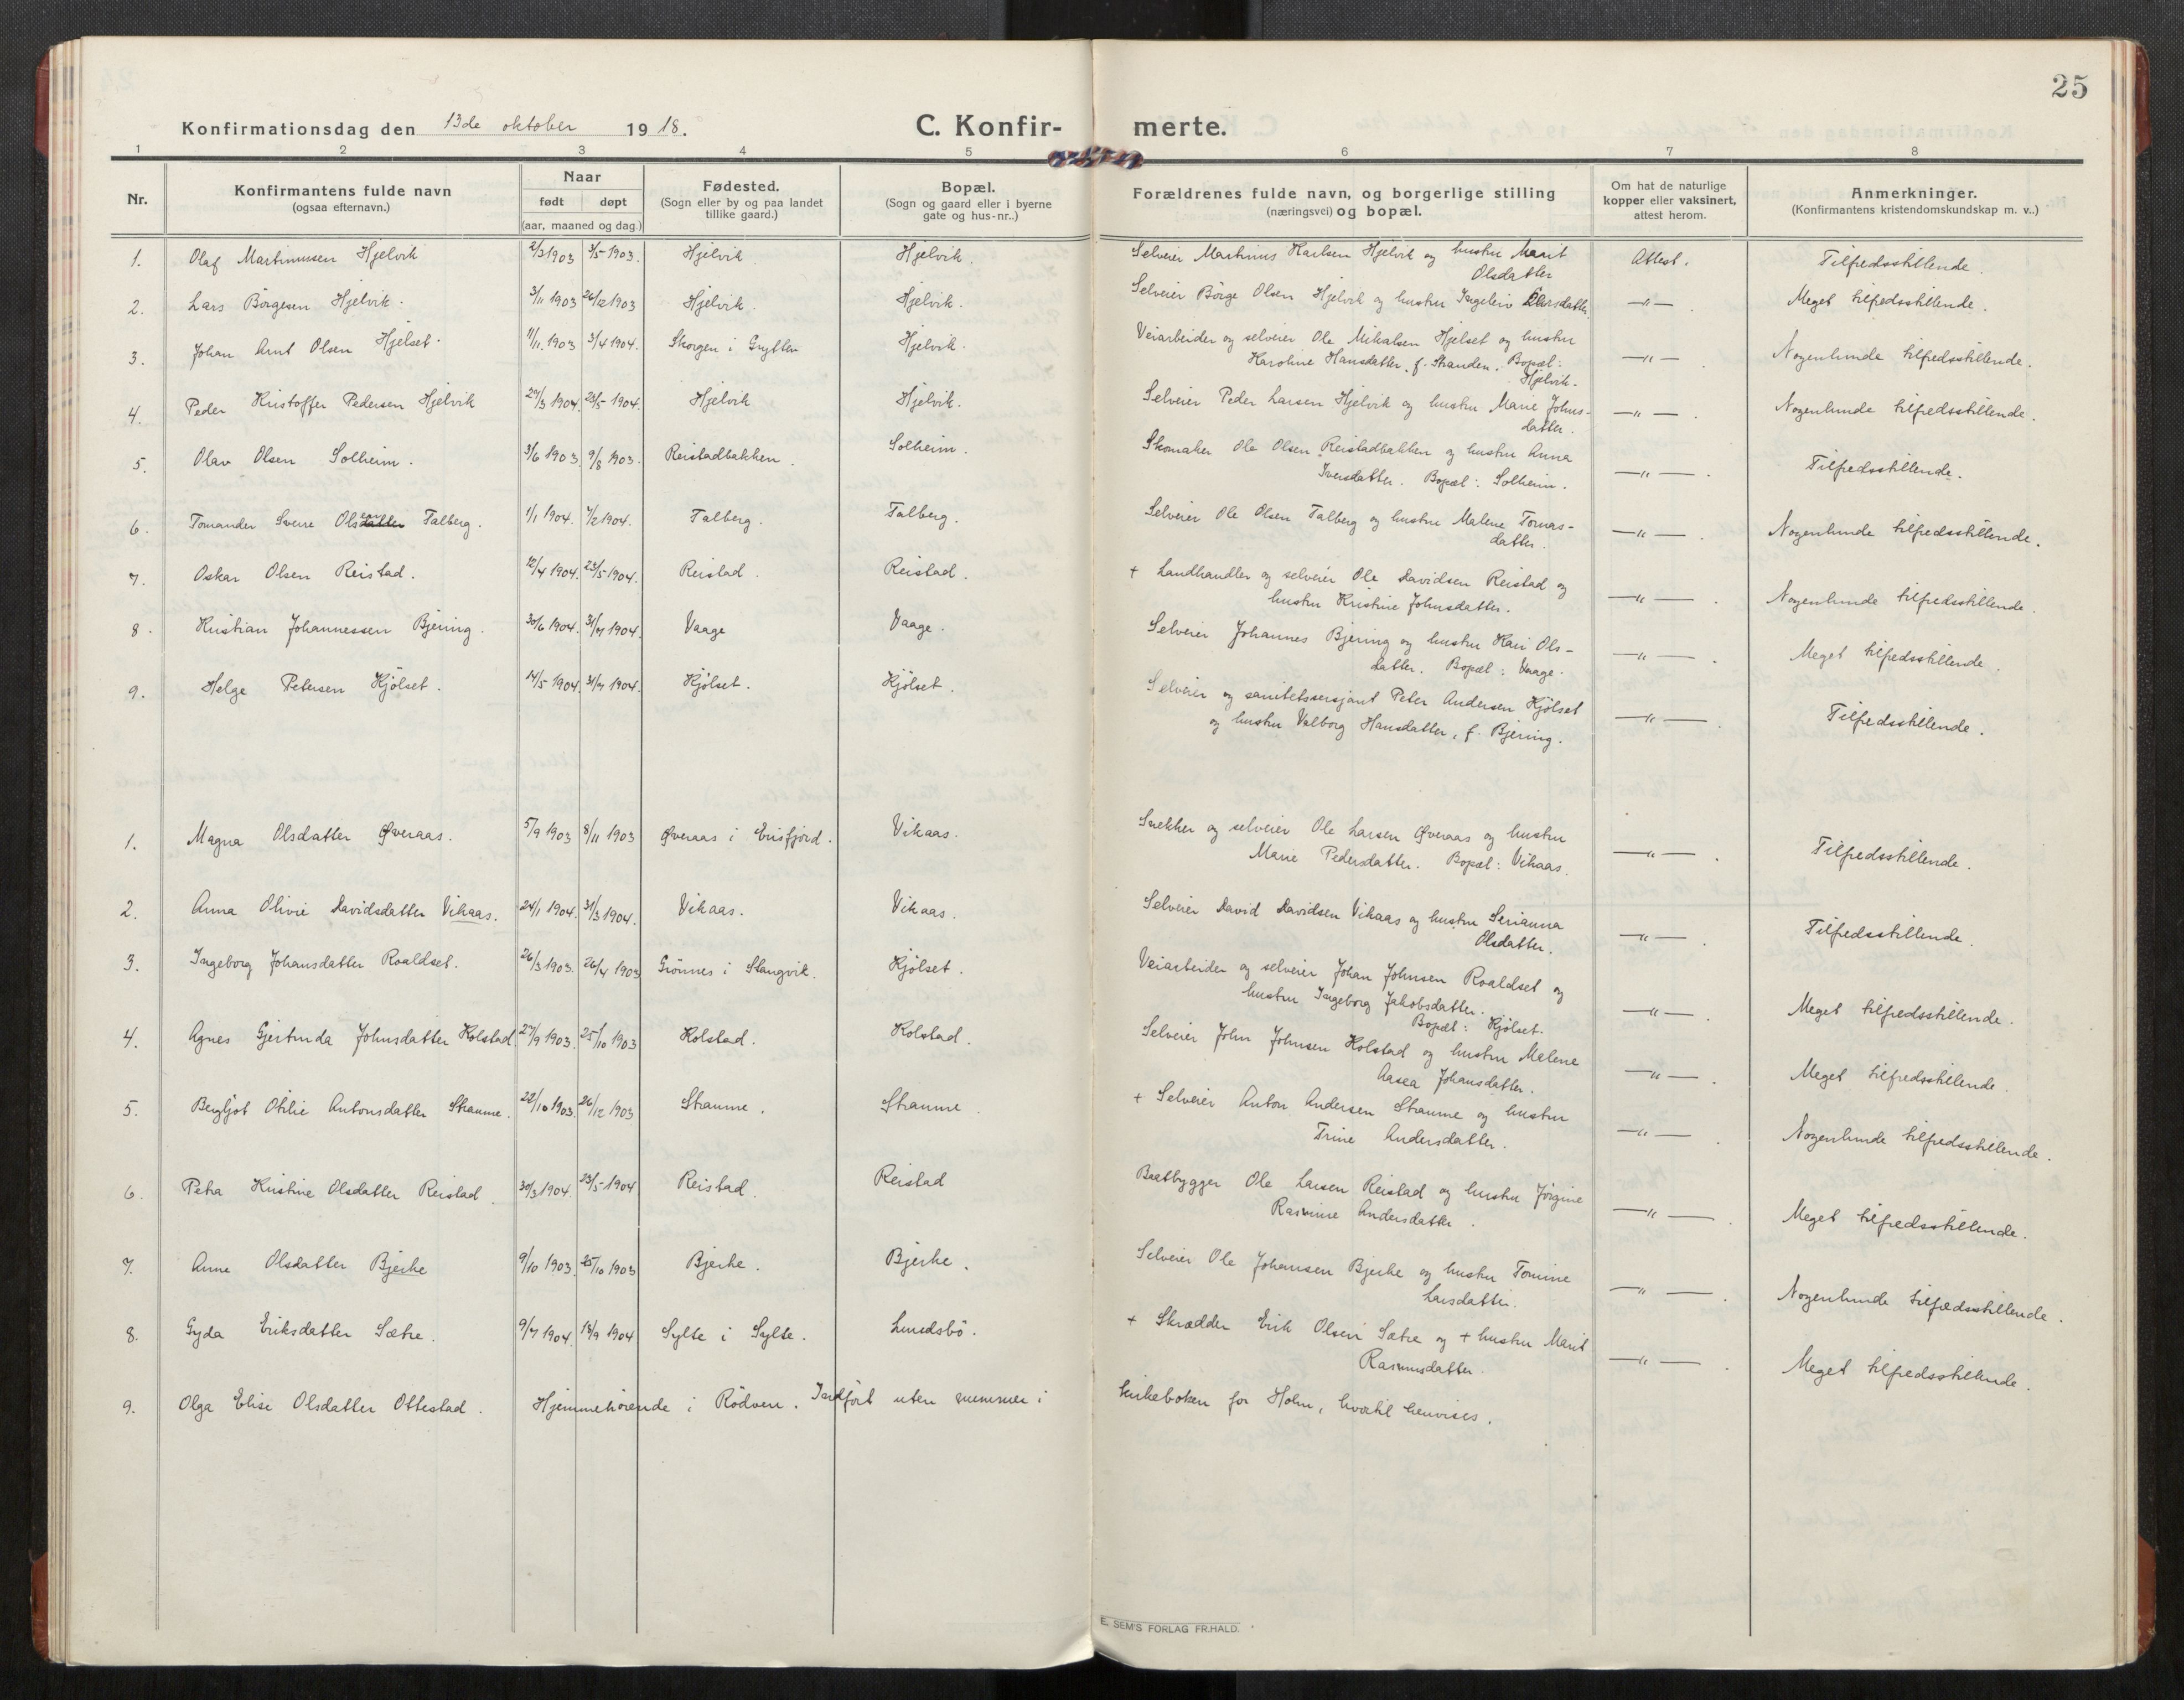 25
Konfirmationsdag den 13de oktober 1918. C. Konfir- merte.
1 2 3 4 5 6 7 8
Nr. Konfirmantens fulde navn (ogsaa efternavn.) Naar født døpt (aar, maaned og dag.) Fødested. (Sogn eller by og paa landet tillike gaard.) Bopæl. (Sogn og gaard eller i byerne gate og hus-nr..) Forældrenes fulde navn, og borgerlige stilling (næringsvei) og bopæl. Om hat de naturlige kopper eller vaksinert, attest herom. Anmerkninger. (Konfirmantens kristendomskundskap m. v..)
1. Olaf Martinussen Hjelvik 2/3 1903 3/5 1903. Hjelvik Hjelvik. Selveier Martinus Karlsen Hjelvik og hustru Marit Attest. Tilfredsstillende.
Olsdatter
2. Lars Börgesen Hjelvik. 3/11 1903 26/12 1903 Hjelvik. Hjelvik. Selveier Börge Olsen Hjelvik og hustru Ingeleiv Larsdatter. —„— Meget tilfredsstillende.
3. Johan Arnt Olsen Hjelset. 11/11. 1903 3/4 1904. Skorgen i Grytten Hjelvik. Veiarbeider og selveier Ole Mikalsen Hjelset og hustru
Karoline Hansdatter, f. Stranden. Bopæl: —„— Nogenlunde tilfredsstillende.
Hjelvik.
4. Peder Kristoffer Pedersen Hjelvik 24/3 1904. 23/5 1904. Hjelvik Hjelvik. Selveier Peder Larsen Hjelvik og hustru Marie Johns- —„—. Nogenlunde tilfredsstillende.
datter.
5. Olav Olsen Solheim. 3/6 1903. 9/8 1903. Reistadbakken. Solheim. Skomaker Ole Olsen Reistadbakken og hustru Anna
Iversdatter. Bopæl: Solheim. —„—. Tilfredsstillende.
6. Tomander Sverre Olsdatter sen Talberg. 1/1 1904. 7/2 1904. Talberg. Talberg. Selveier Ole Olsen Talberg og hustru Malene Tomas-
datter. —„—. Nogenlunde tilfredsstillende.
7. Oskar Olsen Reistad. 12/4 1904. 23/5 1904. Reistad. Reistad. + Landhandler og selveier Ole Davidsen Reistad og
hustru Kristine Johnsdatter. —„—. Nogenlunde tilfredsstillende.
8. Kristian Johannessen Bjering. 30/6 1904. 31/7 1904. Vaage Vaage. Selveier Johannes Bjering og hustru Kari Ols-
datter. Bopæl: Vaage. —„—. Meget tilfredsstillende.
9. Helge Petersen Kjölset. 14/5 1904. 31/7 1904. Kjölset. Kjölset. Selveier og sanitetssersjant Peter Andersen Kjölset
og hustru Valborg Hansdatter, f. Bjering. —„—. Tilfredsstillende.
1. Magna Olsdatter Øveraas. 5/9 1903 8/11 1903 Øveraas i Erisfjord. Vikaas. Snekker og selveier Ole Larsen Øveraas og hustru
Marie Pedersdatter. Bopæl: Vikaas. —„—. Tilfredsstillende.
2. Anna Olivie Davidsdatter Vikaas. 24/1 1904. 31/3 1904. Vikaas. Vikaas. Selveier David Davidsen Vikaas og hustru Serianna
Olsdatter. —„—. Tilfredsstillende.
3. Ingeborg Johansdatter Roaldset. 26/3 1903. 26/4 1903 Grönnes i Stangvik. Kjölset. Veiarbeider og selveier Johan Johnsen Roaldset og
hustru Ingeborg Jakobsdatter. —„—. Meget tilfredsstillende.
Bopæl: Kjölset.
4. Agnes Gjertruda Johnsdatter Kolstad 27/9 1903. 25/10 1903 Kolstad. Kolstad. Selveier John Johnsen Kolstad og hustru Malene
Aasea Johansdatter. —„—. Meget tilfredsstillende.
5. Bergljot Otilie Antonsdatter Straume. 22/10 1903. 26/12 1903 Straume. Straume. + Selveier Anton Andersen Straume og hustru
Trine Andersdatter. —„—. Nogenlunde tilfredsstillende.
6. Petra Kristine Olsdatter Reistad. 30/3 1904. 23/5 1904 Reistad. Reistad Baatbygger Ole Larsen Reistad og hustru Jörgine
Rasmine Andersdatter. —„—. Meget tilfredsstillende.
7. Anne Olsdatter Bjerke 9/10 1903. 25/10 1903 Bjerke. Bjerke. Selveier Ole Johansen Bjerke og hustru Tomine
Larsdatter. —„—. Nogenlunde tilfredsstillende.
8. Gyda Eriksdatter Sætre. 9/7 1904. 18/9 1904 Sylte i Sylte. Lundsbö. + Skrædder Erik Olsen Sætre og + hustru Marit
Rasmusdatter. —„—. Meget tilfredsstillende.
9. Olga Elise Olsdatter Ottestad. Hjemmehörende i Rödven. Indfört uten nummer i kirkeboken for Holm, hvortil henvises.
E. SEM'S FORLAG FR.HALD.